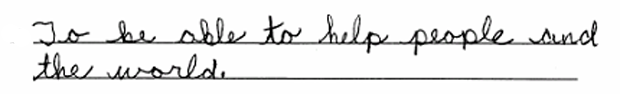 To be able to help people and
the world.